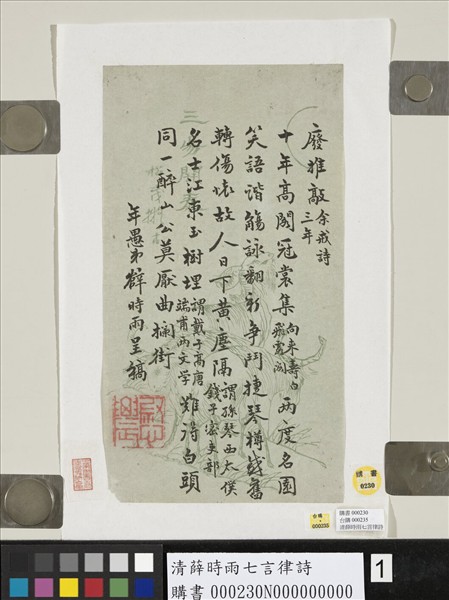 廢推敲余戒詩三年
十年高閣冠裳集向來壽白飛霞閣兩度名園
笑語諧觴詠翻新爭鬥捷琴樽感舊
轉傷懷故人日下黃塵隔謂孫琴西太僕錢子密吏部
名士江東玉樹埋謂戴子高唐端甫兩文學難得白頭
同一醉山公莫厭曲攔街
年愚弟薛時雨呈稿
購書
0230
台購
000235
購書 000230
台購 000235
清薛時雨七言律詩
清薛時雨七言律詩
購書 000230N000000000
1